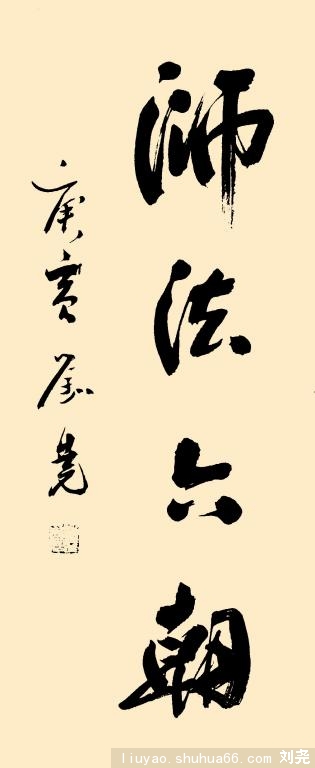 師法六朝
庚寅劉堯
liuyao.shuhua66.com 刘尧